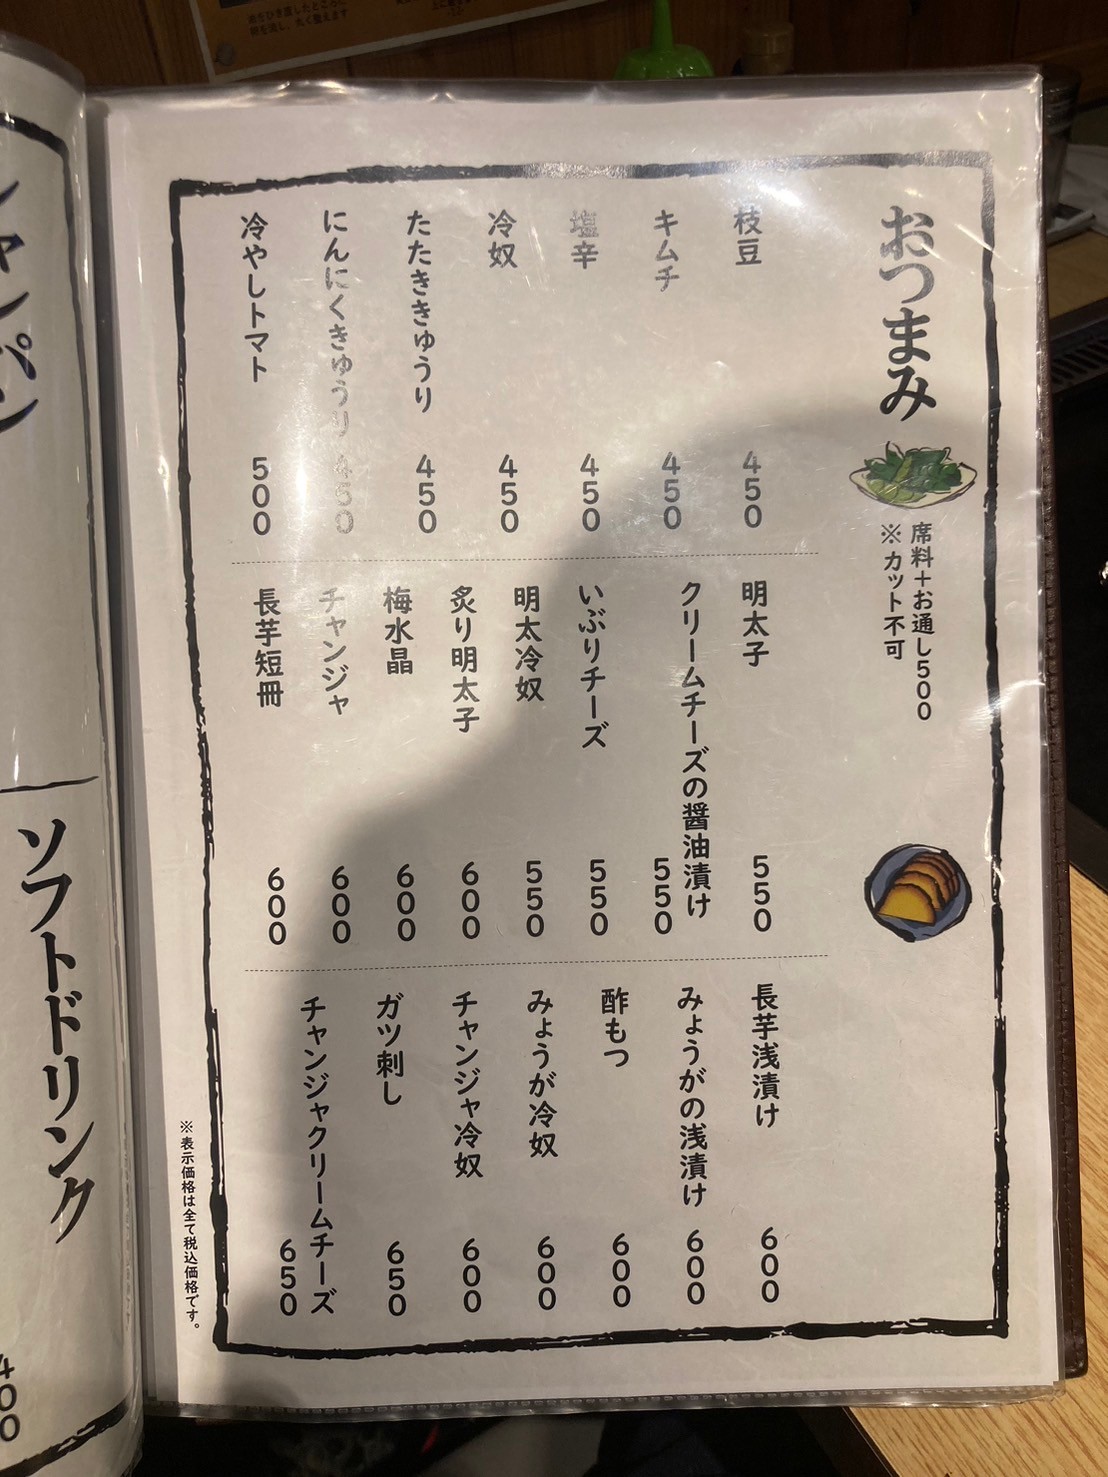 おつまみ
席料+お通し500
※カット不可
枝豆 450
キムチ 450
塩辛 450
冷奴 450
たたききゅうり 450
にんにくきゅうり 450
冷やしトマト 500
明太子 550
クリームチーズの醤油漬け 550
いぶりチーズ 550
明太冷奴 550
炙り明太子 600
梅水晶 600
チャンジャ 600
長芋短冊 600
長芋浅漬け 600
みょうがの浅漬け 600
酢もつ 600
みょうが冷奴 600
チャンジャ冷奴 600
ガツ刺し 650
チャンジャクリームチーズ 650
※表示価格は全て税込価格です。
ャンパン
ソフトドリンク
400